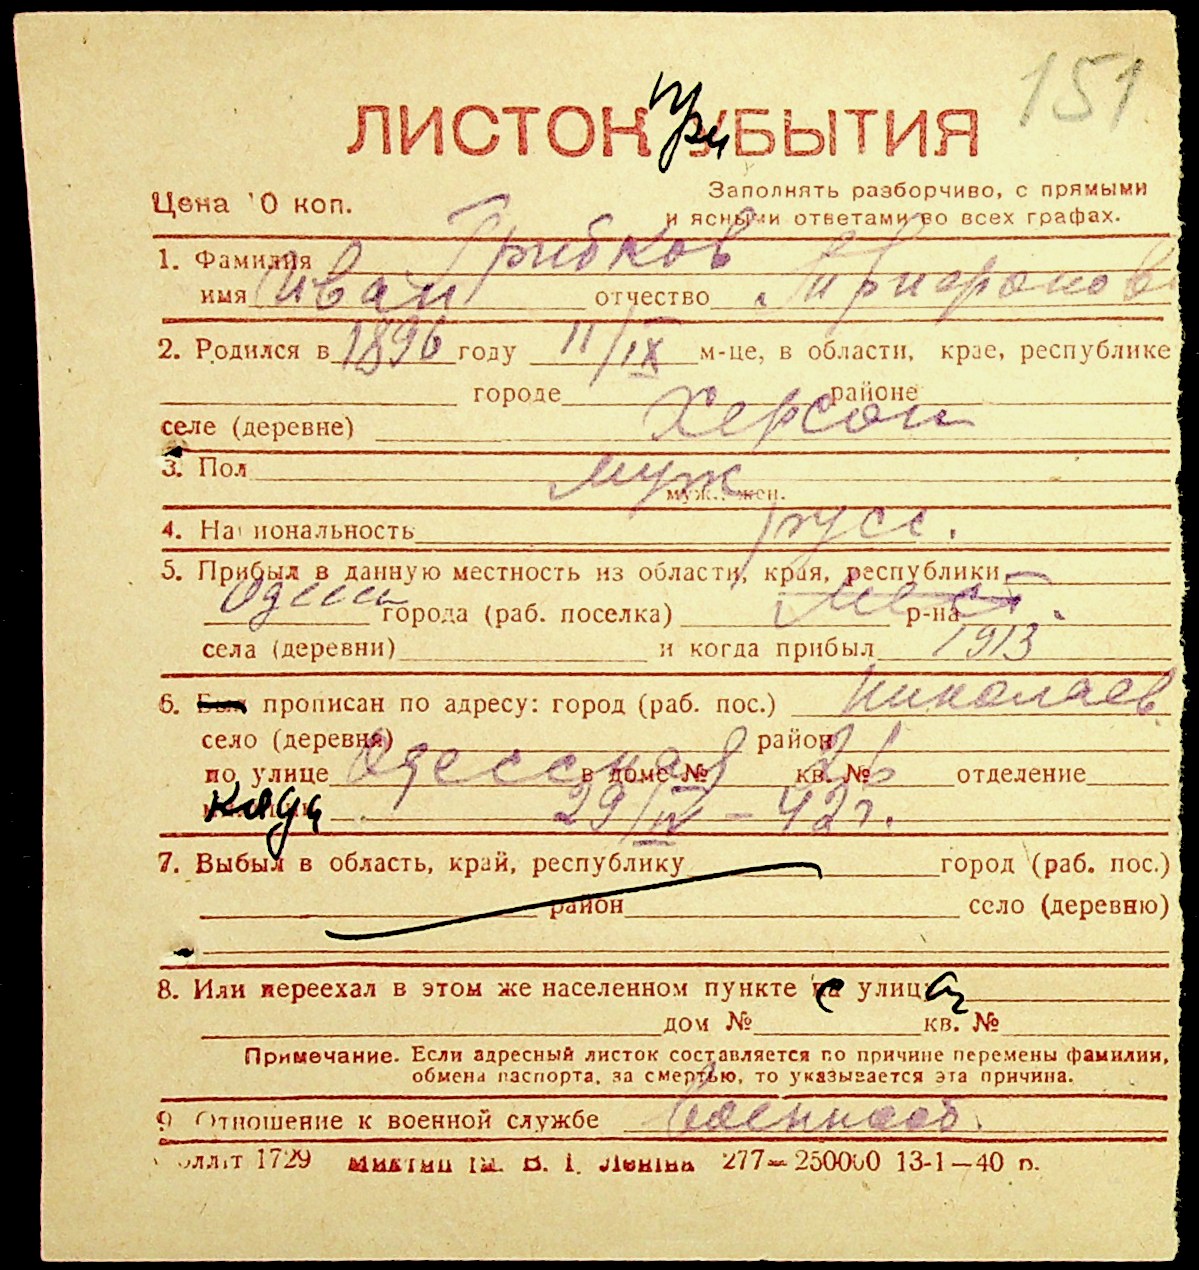 151
ЛИСТОК при УБЫТИЯ
Цена 10 коп.
Заполнять разборчиво, с прямыми
и ясными ответами во всех графах.
1. Фамилия Грибков
имя Иван отчество
2. Родился в 1896 году 11/IX м-це, в области, крае, республике
городе районе
селе (деревне) Херсон
3. Пол муж
муж., жен.
4. Национальность русс.
5. Прибыл в данную местность из области, края, республики
Одесс города (раб. поселка) мест. р-на
села (деревни) и когда прибыл 1913
6. Был прописан по адресу: город (раб. пос.) Николаев
село (деревня) район
по улице Одесская в доме № 26 кв. № отделение
когда 29/IV – 42 г.
7. Выбыл в область, край, республику город (раб. пос.)
район село (деревню)
8. Или переехал в этом же населенном пункте с улицы
дом № кв. №
Примечание. Если адресный листок составляется по причине перемены фамилии,
обмена паспорта, за смертью, то указывается эта причина.
9. Отношение к военной службе военнооб.
1729 277—250000 13-1—40 р.